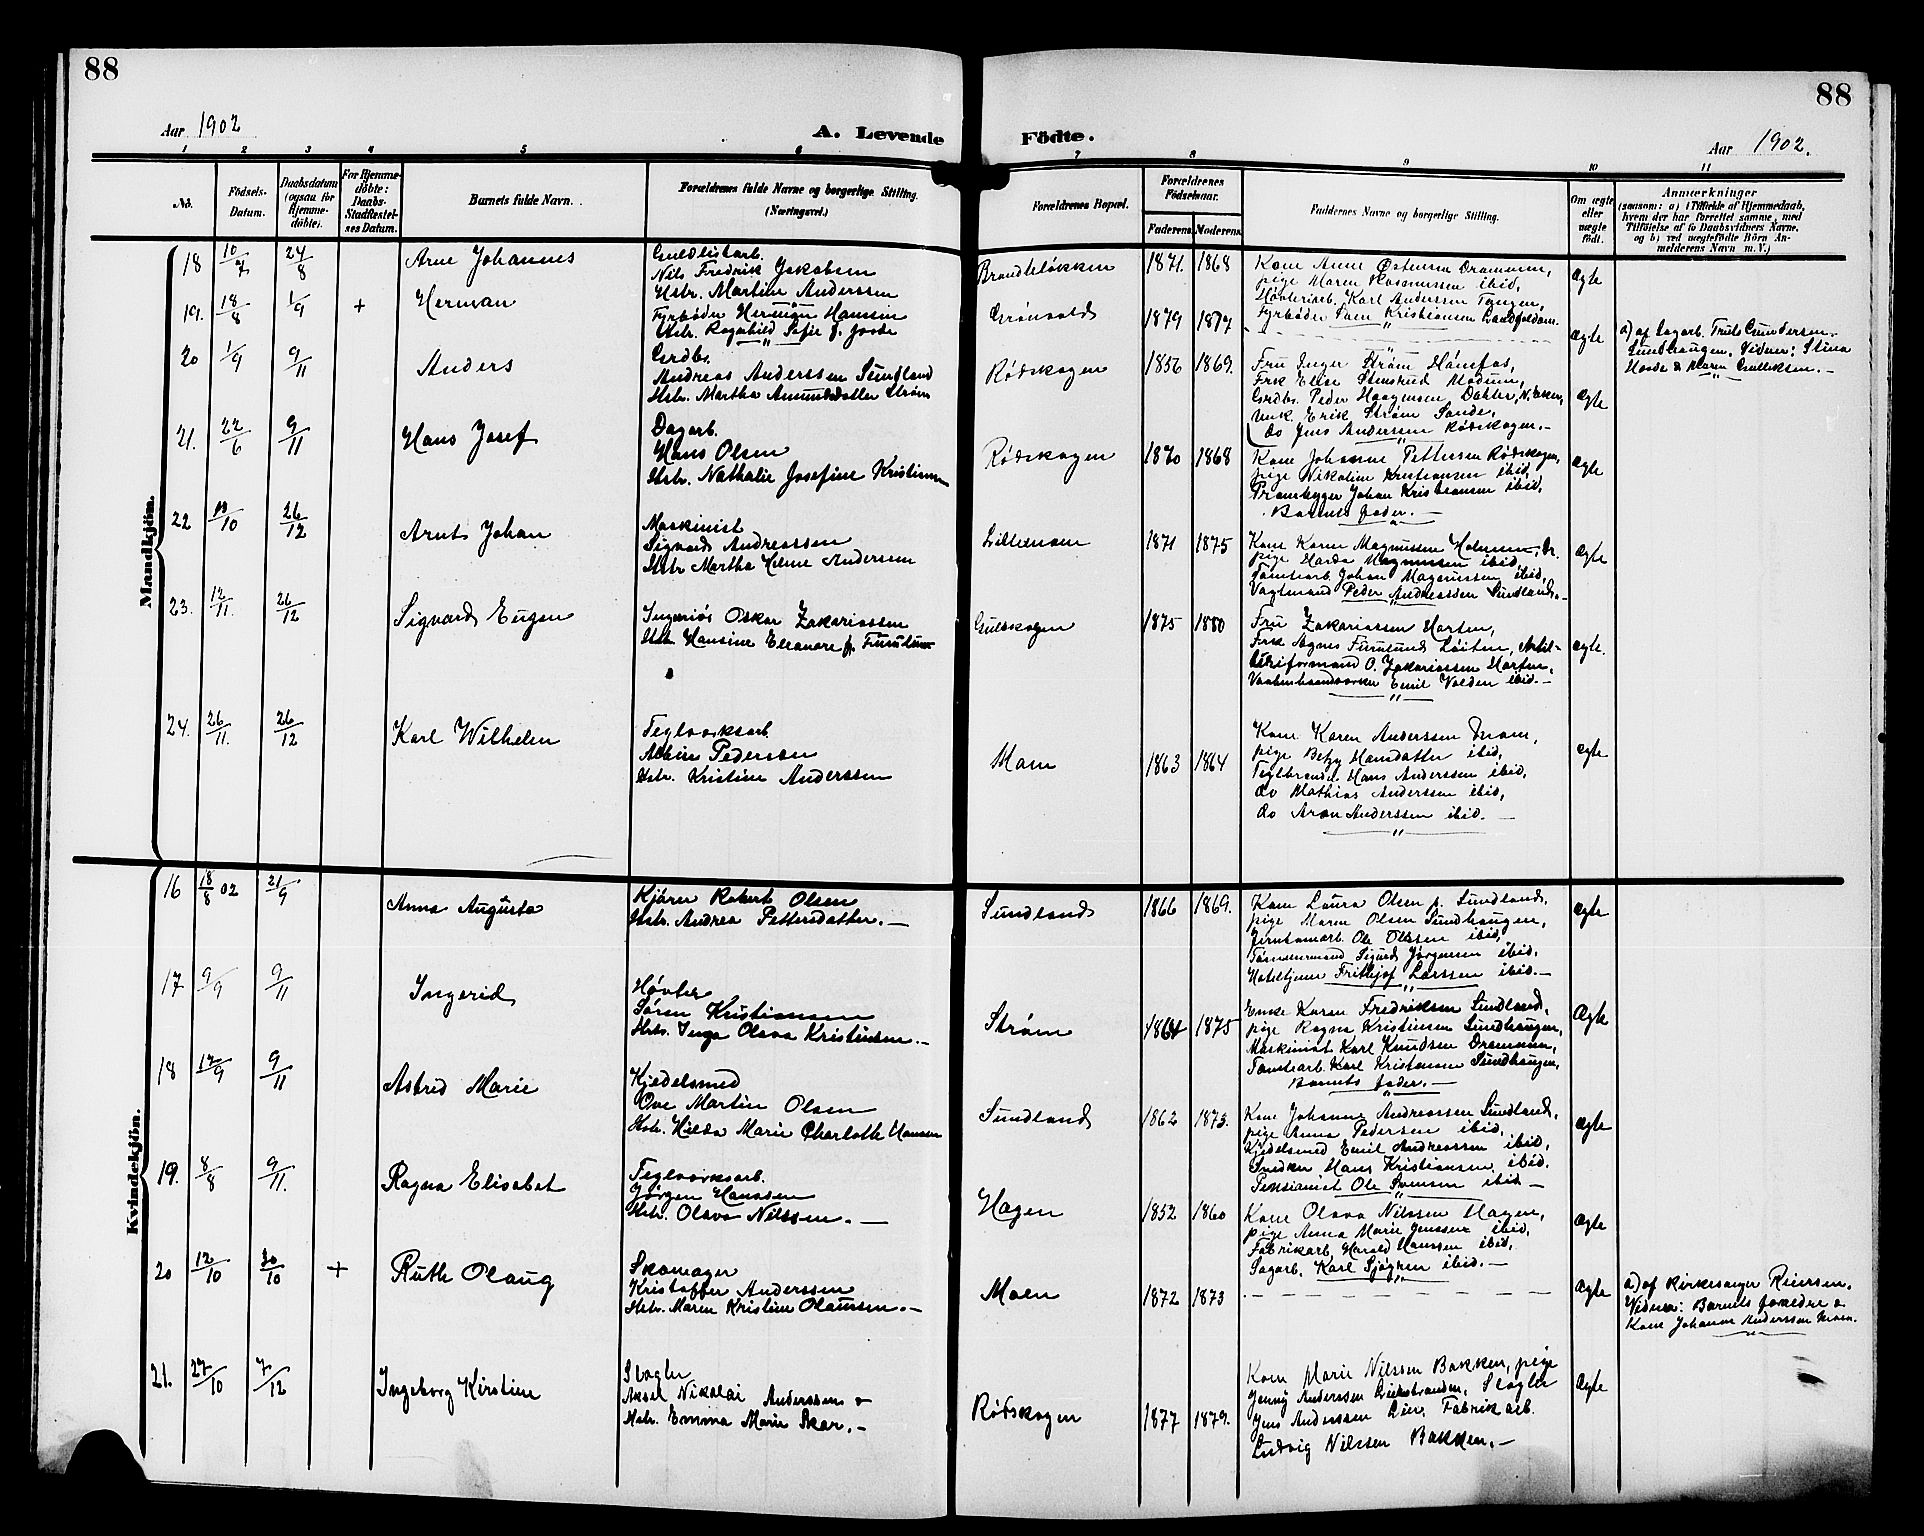 88
88
Aar 1902
A. Levende Födte.
Aar 1902.
1 2 3 4 5 6 7 8 9 10 11
No.
Födsels-Datum.
Daabsdatum (ogsaa for Hjemmedöbte).
For Hjemmedöbte: Daabs-Stadfæstelses Datum.
Barnets fulde Navn.
Forældrenes fulde Navne og borgerlige Stilling. (Næringsvei.)
Forældrenes Bopæl.
Forældrenes Födselsaar.
Faderens.
Moderens.
Faddernes Navne og borgerlige Stilling.
Om ægte eller uægte födt.
Anmærkninger
(saasom: a) i Tilfælde af Hjemmedaab,
hvem der har forrettet samme, med
Tilföielse af to Daabsvidners Navne,
og b) ved uægtefödte Börn An-
melderens Navn m. V.)
Mandkjön.
18 10/7 24/8 Arne Johannes
Guldlistarb.
Nils Fredrik Jakobsen
Hstr. Martine Anderssen
Brandtløkken 1871. 1868
Kone Anne Østensen Drammen,
pige Maren Rasmussen ibid,
Høvleriarb. Karl Anderssen Tangen,
Fyrbøder Sam Kristiansen
ægte
19. 18/8 1/9 + Herman
Fyrbøder Herman Hansen
Hstr. Ragnhild Sofie f. Horde
Grønvold 1879 1877
ægte
a) af Sagarb. Truls Gundersen
Sundhaugen. Vidner: Stina
Horde & Maren Gulliksen.-
20 1/9 9/11 Anders
Grdbr.
Andreas Anderssen Sundland
Hstr. Martha Amundsdatter Strøm
Rødskogen 1856 1869.
Fru Inger Strøm Hønefos,
Frk Elise Stensrud Modum,
Grdbr. Peder Haagensen Dahler, N. Eker,
Unk. Erik Strøm Sande,
do Jens Anderssen Rødskogen.-
ægte
21. 22/6 9/11 Hans Josef
Dagarb.
Hans Olsen
Hstr. Nathalie Josefine Kristiansen
Rødskogen 1870 1868
Kone Johanne Pettersen Rødskogen,
pige Nikoline Kristiansen ibid,
Prambygger Johan Kristiansen ibid,
Barnets fader.-
ægte
22 10/10 26/12 Arnt Johan
Maskinist
Sigvard Andreassen
Hstr Martha Helene Andersen
Lillemoen 1871 1875
Kone Karen Magnussen Holmen, Dr.
pige Harda Magnussen ibid,
Tomtearb. Johan Magnussen ibid,
Vagtmand Peder Andreassen Sundland.-
ægte
23. 12/11. 26/12 Sigvard Eugen
Ingeniør Oskar Zakariassen
Hstr Hansine Eleanore f. Furulund
Gulskogen 1875 1880
Fru Zakariassen Horten,
Frk Agnes Furulund Løiten, Artil-
leriformand O. Zakariassen Horten,
Vaabenhaandverker Emil Volden ibid.-
ægte.
24. 26/11. 26/12 Karl Wilhelm
Teglverksarb.
Albin Pedersen
Hstr. Kristine Anderssen
Moen 1863 1864
Kone Karen Anderssen Moen,
pige Betzy Hansdatter ibid,
Teglbrænder Hans Anderssen ibid,
do Mathias Anderssen ibid,
do Aron Anderssen ibid.-
ægte
Kvindekjön.
16 18/8 02 21/9 Anna Augusta
Kjører Robert Olsen
Hstr. Andrea Pettersdatter.-
Sundland 1866 1869.
Kone Laura Olsen f. Sundland,
pige Maren Olsen Sundhaugen,
Jerntomarb. Ole Olssen ibid,
Tømmermand Sigurd Jørgensen ibid.
Hoteltjener Frithjof Larssen ibid.-
ægte
17 9/9 9/11 Ingerid
Høvler
Søren Kristiansen
Hstr. Inga Olava Kristensen.-
Strøm 1864 1875
Enke Karen Fredriksen Sundland,
pige Ragna Kristensen Sundhaugen,
Maskinist Karl Knudsen Drammen,
Tomtearb. Karl Kristensen Sundhaugen,
Barnets fader.-
Ægte
18 12/9 9/11 Astrid Marie
Kjedelsmed
Ove Martin Olsen
Hstr. Hilda Marie Charlotte Hansen
Sundland 1862 1873.
Kone Johanne Andreassen Sundland,
pige Anna Pedersen ibid,
Kjedelsmed Emil Andreassen ibid,
Snedker Hans Kristiansen ibid.
Pensionist Ole Svensen ibid.-
ægte
19. 8/8 9/11. Ragna Elisabet
Teglverksarb.
Jørgen Hanssen
Hstr. Olava Nilssen.-
Hagen 1852 1860
Kone Olava Nilssen Hagen,
pige Anna Marie Jenssen ibid,
Fabrikarb. Harald Hanssen ibid,
Sagarb. Karl Sjøgren ibid.-
ægte
20 12/10 30/10 + Ruth Olaug
Skomager
Kristoffer Anderssen
Hstr. Maren Kristine Olaussen.-
Moen 1872 1873
ægte
a) af Kirkesanger Riersen.
Vidner: Barnets forældre &
Kone Johanne Anderssen Moen.
21. 27/10 7/12 Ingeborg Kirstine
Slagter
Aksel Nikolai Anderssen &
Hstr. Emma Marie Skar.-
Rødskogen 1877 1879.
Kone Marie Nilssen Bakken, pige
Jenny Anderssen Lierstranden, Slagter
Jens Anderssen Lier, Fabrikarb.
Ludvig Nilssen Bakken.-
ægte